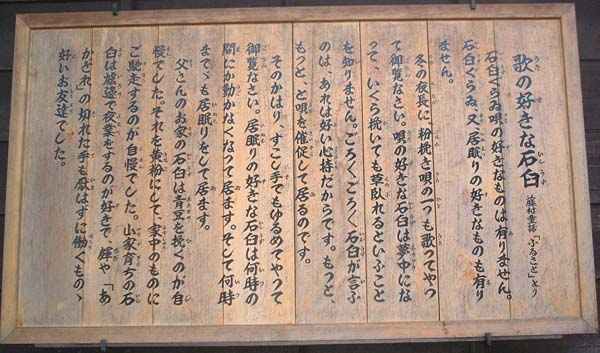 歌の好きな石臼 藤村童話「ふるさと」より
石臼ぐらゐ唄の好きなものは有りません。
石臼ぐらゐ、又、居眠りの好きなものも有り
ません。
冬の夜長に、粉挽き唄の一つも歌つてやつ
て御覧なさい。唄の好きな石臼は夢中にな
つて、いくら挽いても草臥れるといふこと
を知りません。ごろくごろく石臼が言ふ
のは、あれは好い心持だからです。もつと、
もつと、と唄を催促して居るのです。
そのかはり、すこし手でもゆるめてやつて
御覧なさい。居眠りの好きな石臼は何時の
間にか動かなくなつて居ます。そして何時
までゝも居眠りをして居ます。
父さんのお家の石臼は青豆を挽くのが自
慢でした。それを黄粉にして、家中のものに
ご馳走するのが自慢でした。山家育ちの石
臼は爐邊で夜業をするのが好きで、皹や「あ
かぎれ」の切れた手も厭はずに働くものゝ
好いお友達でした。